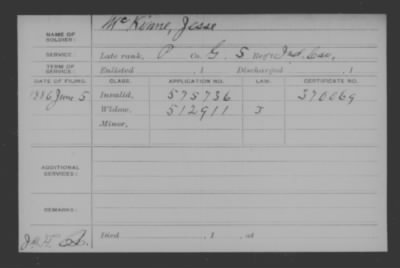 NAME OF SOLDIER: McKinne, Jesse
SERVICE: Late rank, P Co. G, 5 Reg't Ind. Cav.
TERM OF SERVICE: Enlisted , 1 Discharged , 1
DATE OF FILING. CLASS. APPLICATION NO. LAW. CERTIFICATE NO.
1886 June 5 Invalid, 575736 370069
Widow, 512911 J
Minor,
ADDITIONAL SERVICES:
REMARKS:
Died , 1 , at